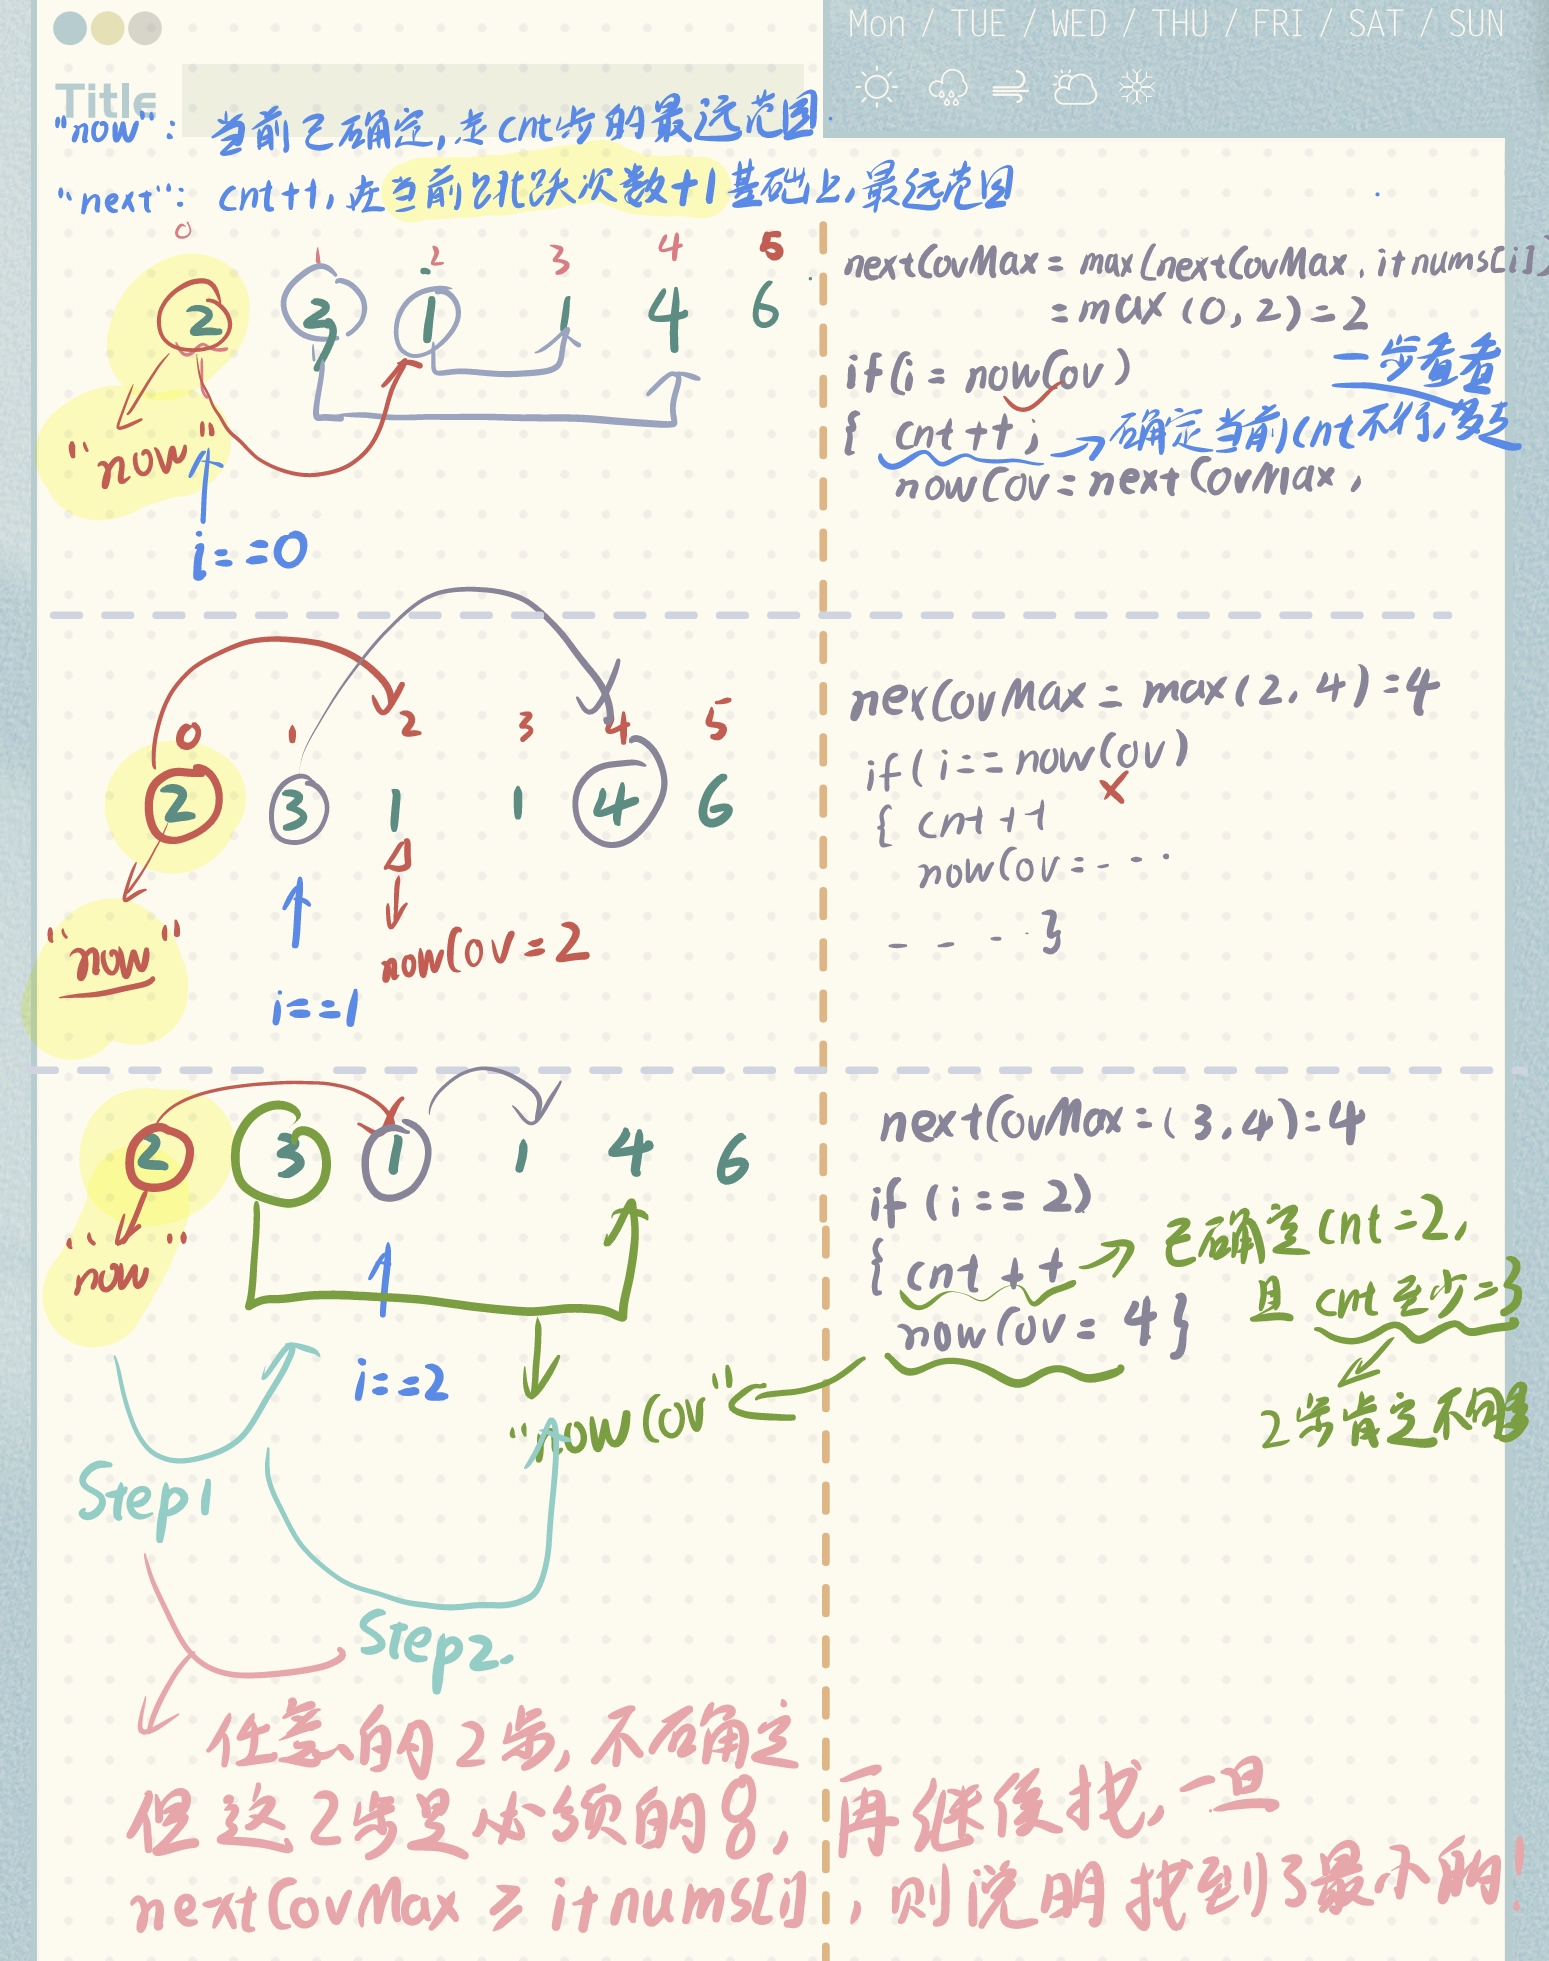 Mon / TUE / WED / THU / FRI / SAT / SUN
Title
"now": 当前已确定,走cnt步的最远范围.
"next": cnt++, 在当前跳跃次数+1基础上,最远范围
0 1 2 3 4 5
2 3 1 1 4 6
"now"
i==0
nextCovMax = max(nextCovMax, i+nums[i])
= max (0, 2) = 2
if(i = nowCov)
一步看看
{ cnt++; → 确定当前cnt不行,多走
nowCov = nextCovMax,
0 1 2 3 4 5
2 3 1 1 4 6
"now"
nowCov = 2
i==1
nexCovMax = max(2, 4) = 4
if(i== nowCov)
{ cnt++
nowCov = - - -
- - - - }
2 3 1 1 4 6
"now"
i==2
"nowCov"
nextCovMax = (3,4)=4
if (i == 2)
{ cnt++ → 已确定cnt=2,
且 cnt至少=3
nowCov = 4 }
2步肯定不够
Step1
Step2.
任意的2步,不确定
但这2步是必须的8, 再继续找,一旦
nextCovMax ≥ i+nums[i], 则说明找到了最小的!